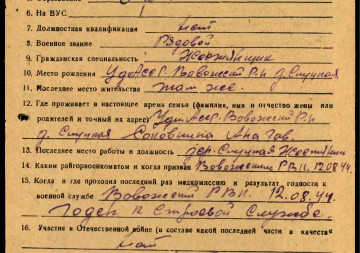 6. На ВУС 1
7. Должностная квалификация нет
8. Военное звание Рядовой
9. Гражданская специальность Жестянщик
10. Место рождения УдАССР. Вовожский Р.н д. Слуцкая
11. Последнее место жительства там же.
12. Где проживает в настоящее время семья (фамилия, имя и отчество жены или
родителей и точный их адрес) Вовожский Р.н
д. Слуцкая
13. Последнее место работы и должность дер. Слуцкая Жестянщик
14. Каким райгорвоенкоматом и когда призван Вовожским Р.В.К. 12.08.44.
15. Когда и где проходил последний раз медкомиссию и результат годности к
военной службе Вовожский Р.В.К. 12.08.44.
Годен к Строевой Службе.
16. Участие в Отечественной войне (в составе какой последней части и в качестве
нет